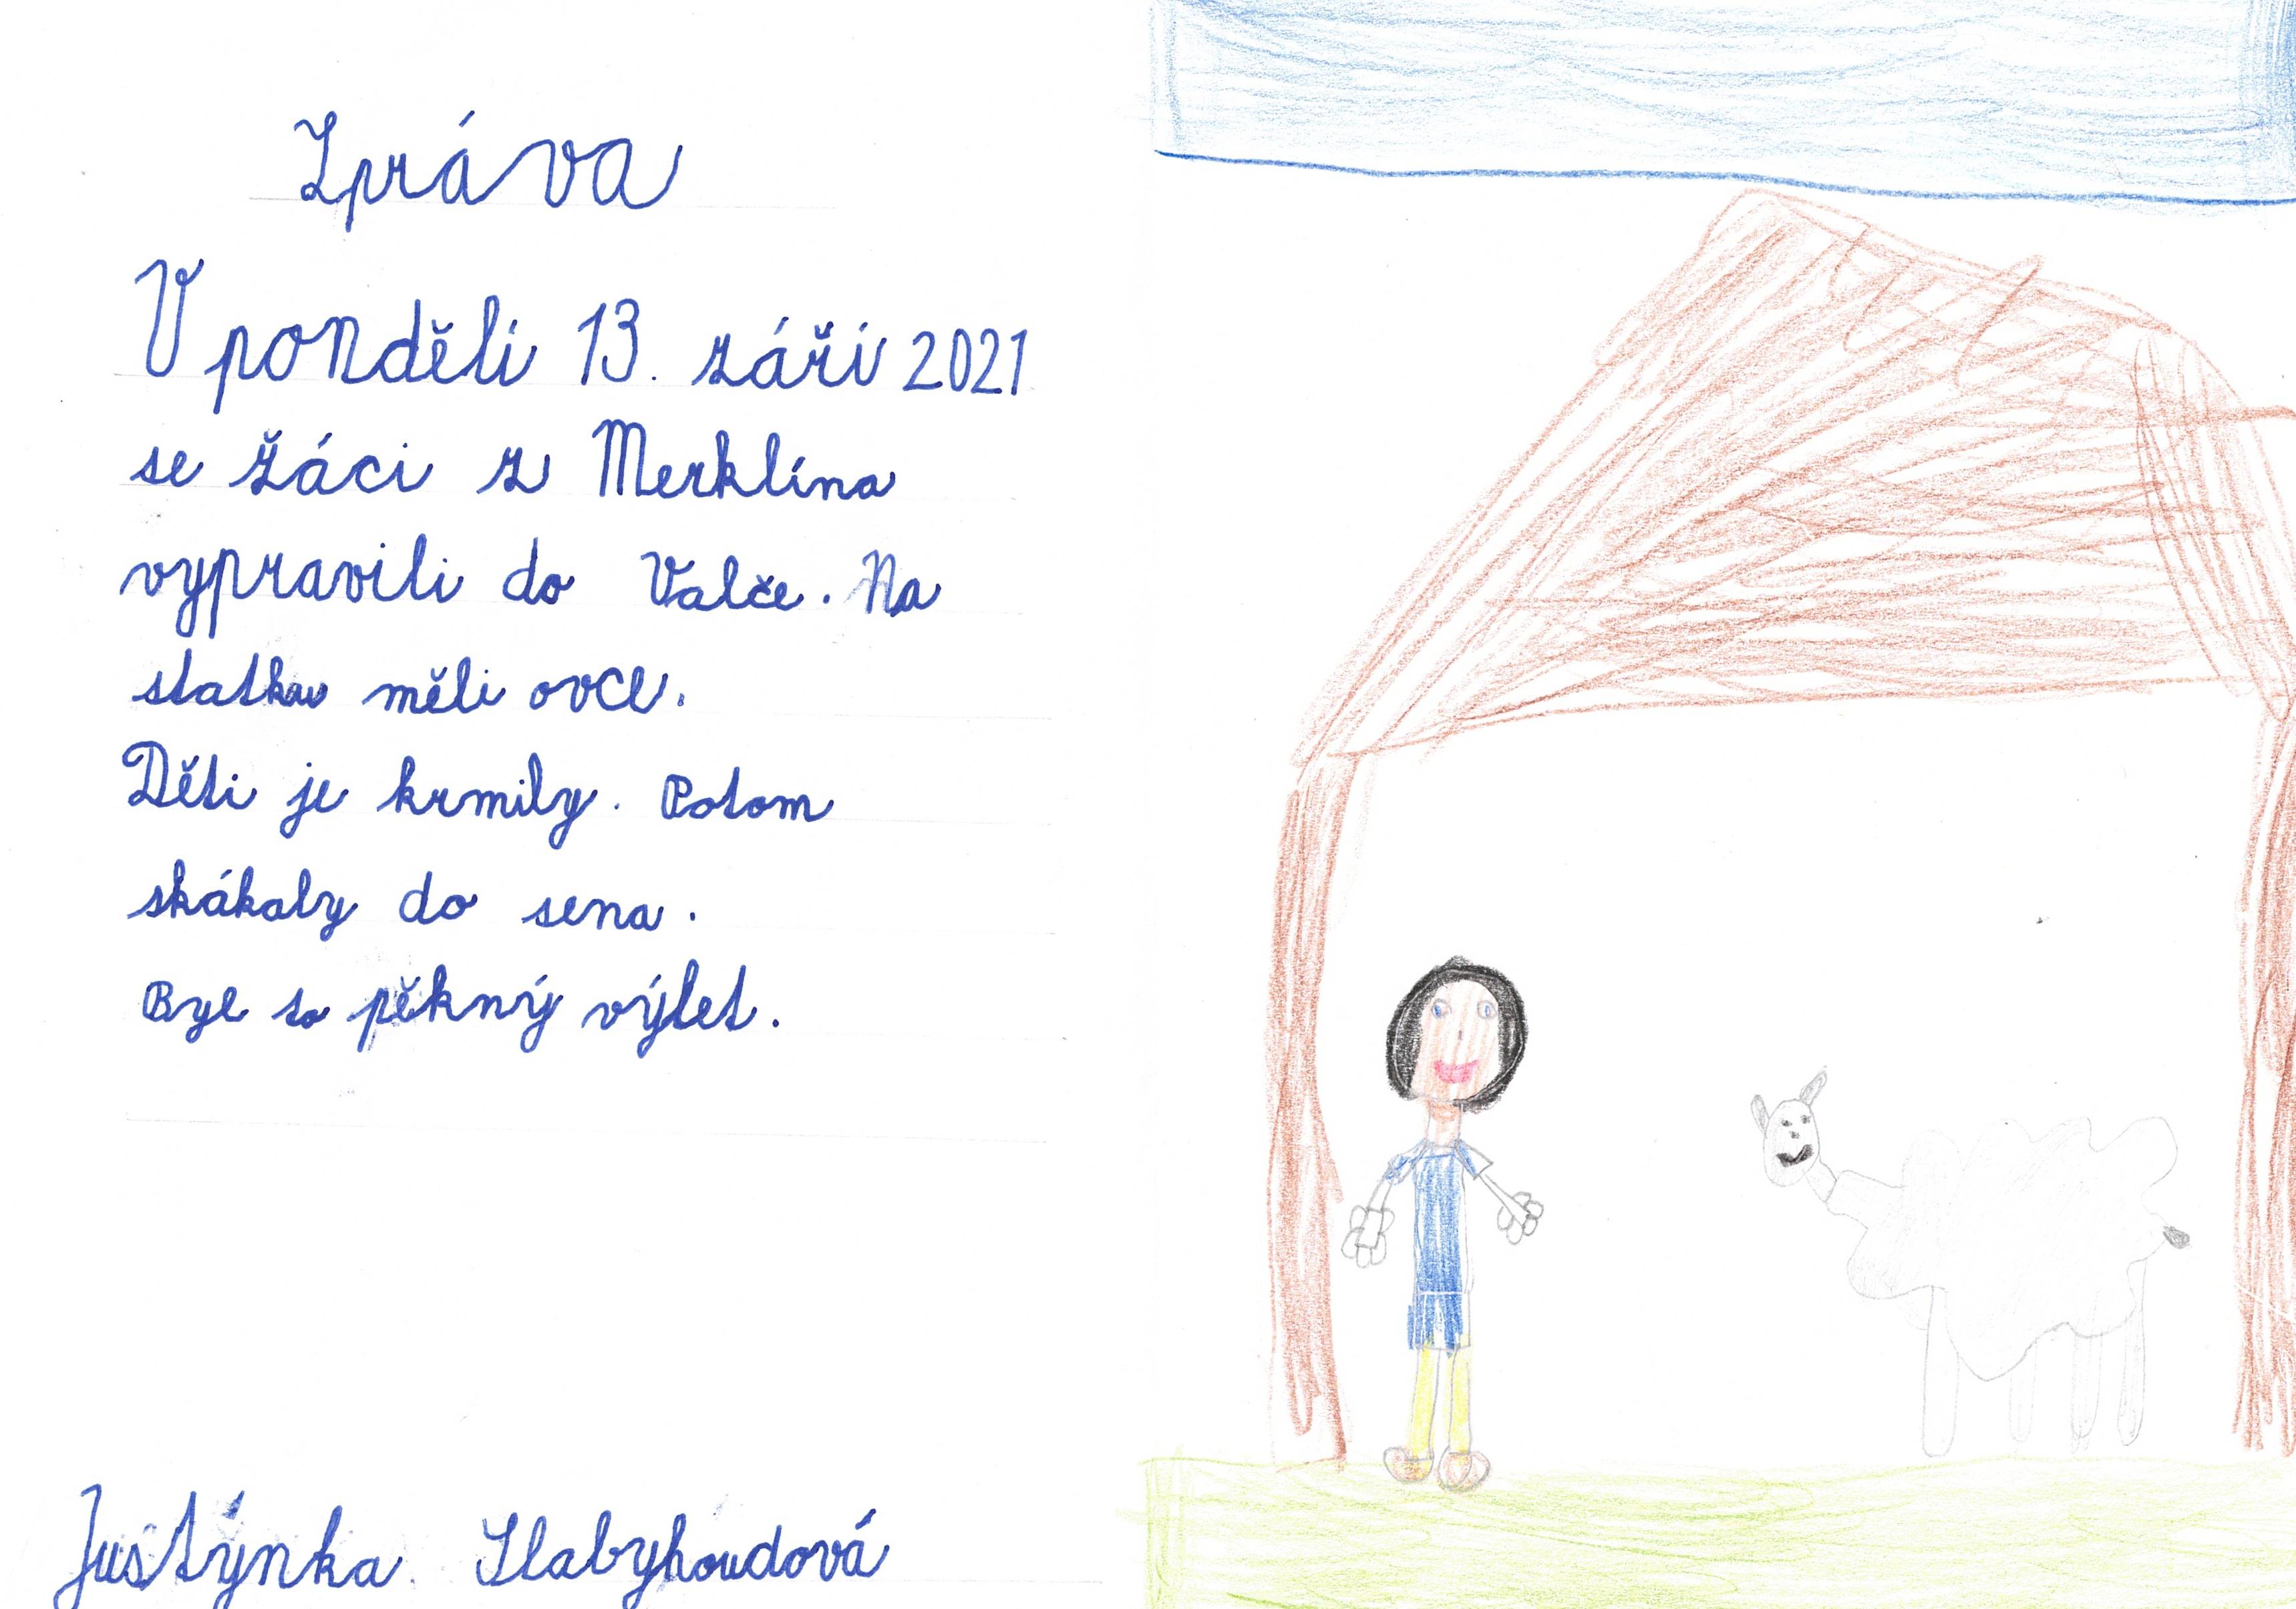 Zpráva
V pondělí 13. září 2021
se žáci z Merklína
vypravili do Valče. Na
statku měli ovce.
Děti je krmily. Potom
skákaly do sena.
Byl to pěkný výlet.
Justýnka Slabyhoudová